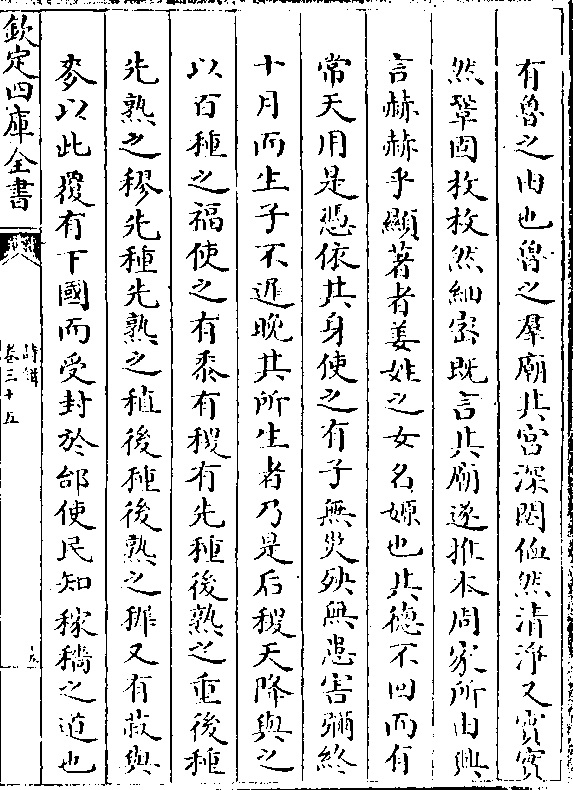 有魯之由也魯之羣廟其宮深閟侐然清淨又實實
然鞏固枚枚然細宻既言其廟遂推本周家所由興
言赫赫乎顯著者姜姓之女名嫄也其徳不回而有
常天用是憑依其身使之有子無災殃無患害彌終
十月而生子不遲晚其所生者乃是后稷天降與之
以百種之福使之有黍有稷有先種後熟之重後種
先熟之穋先種先熟之稙後種後熟之稺又有菽與
麥以此覆有下國而受封於邰使民知稼穡之道也
欽定四庫全書
詩緝
卷三十五
十五